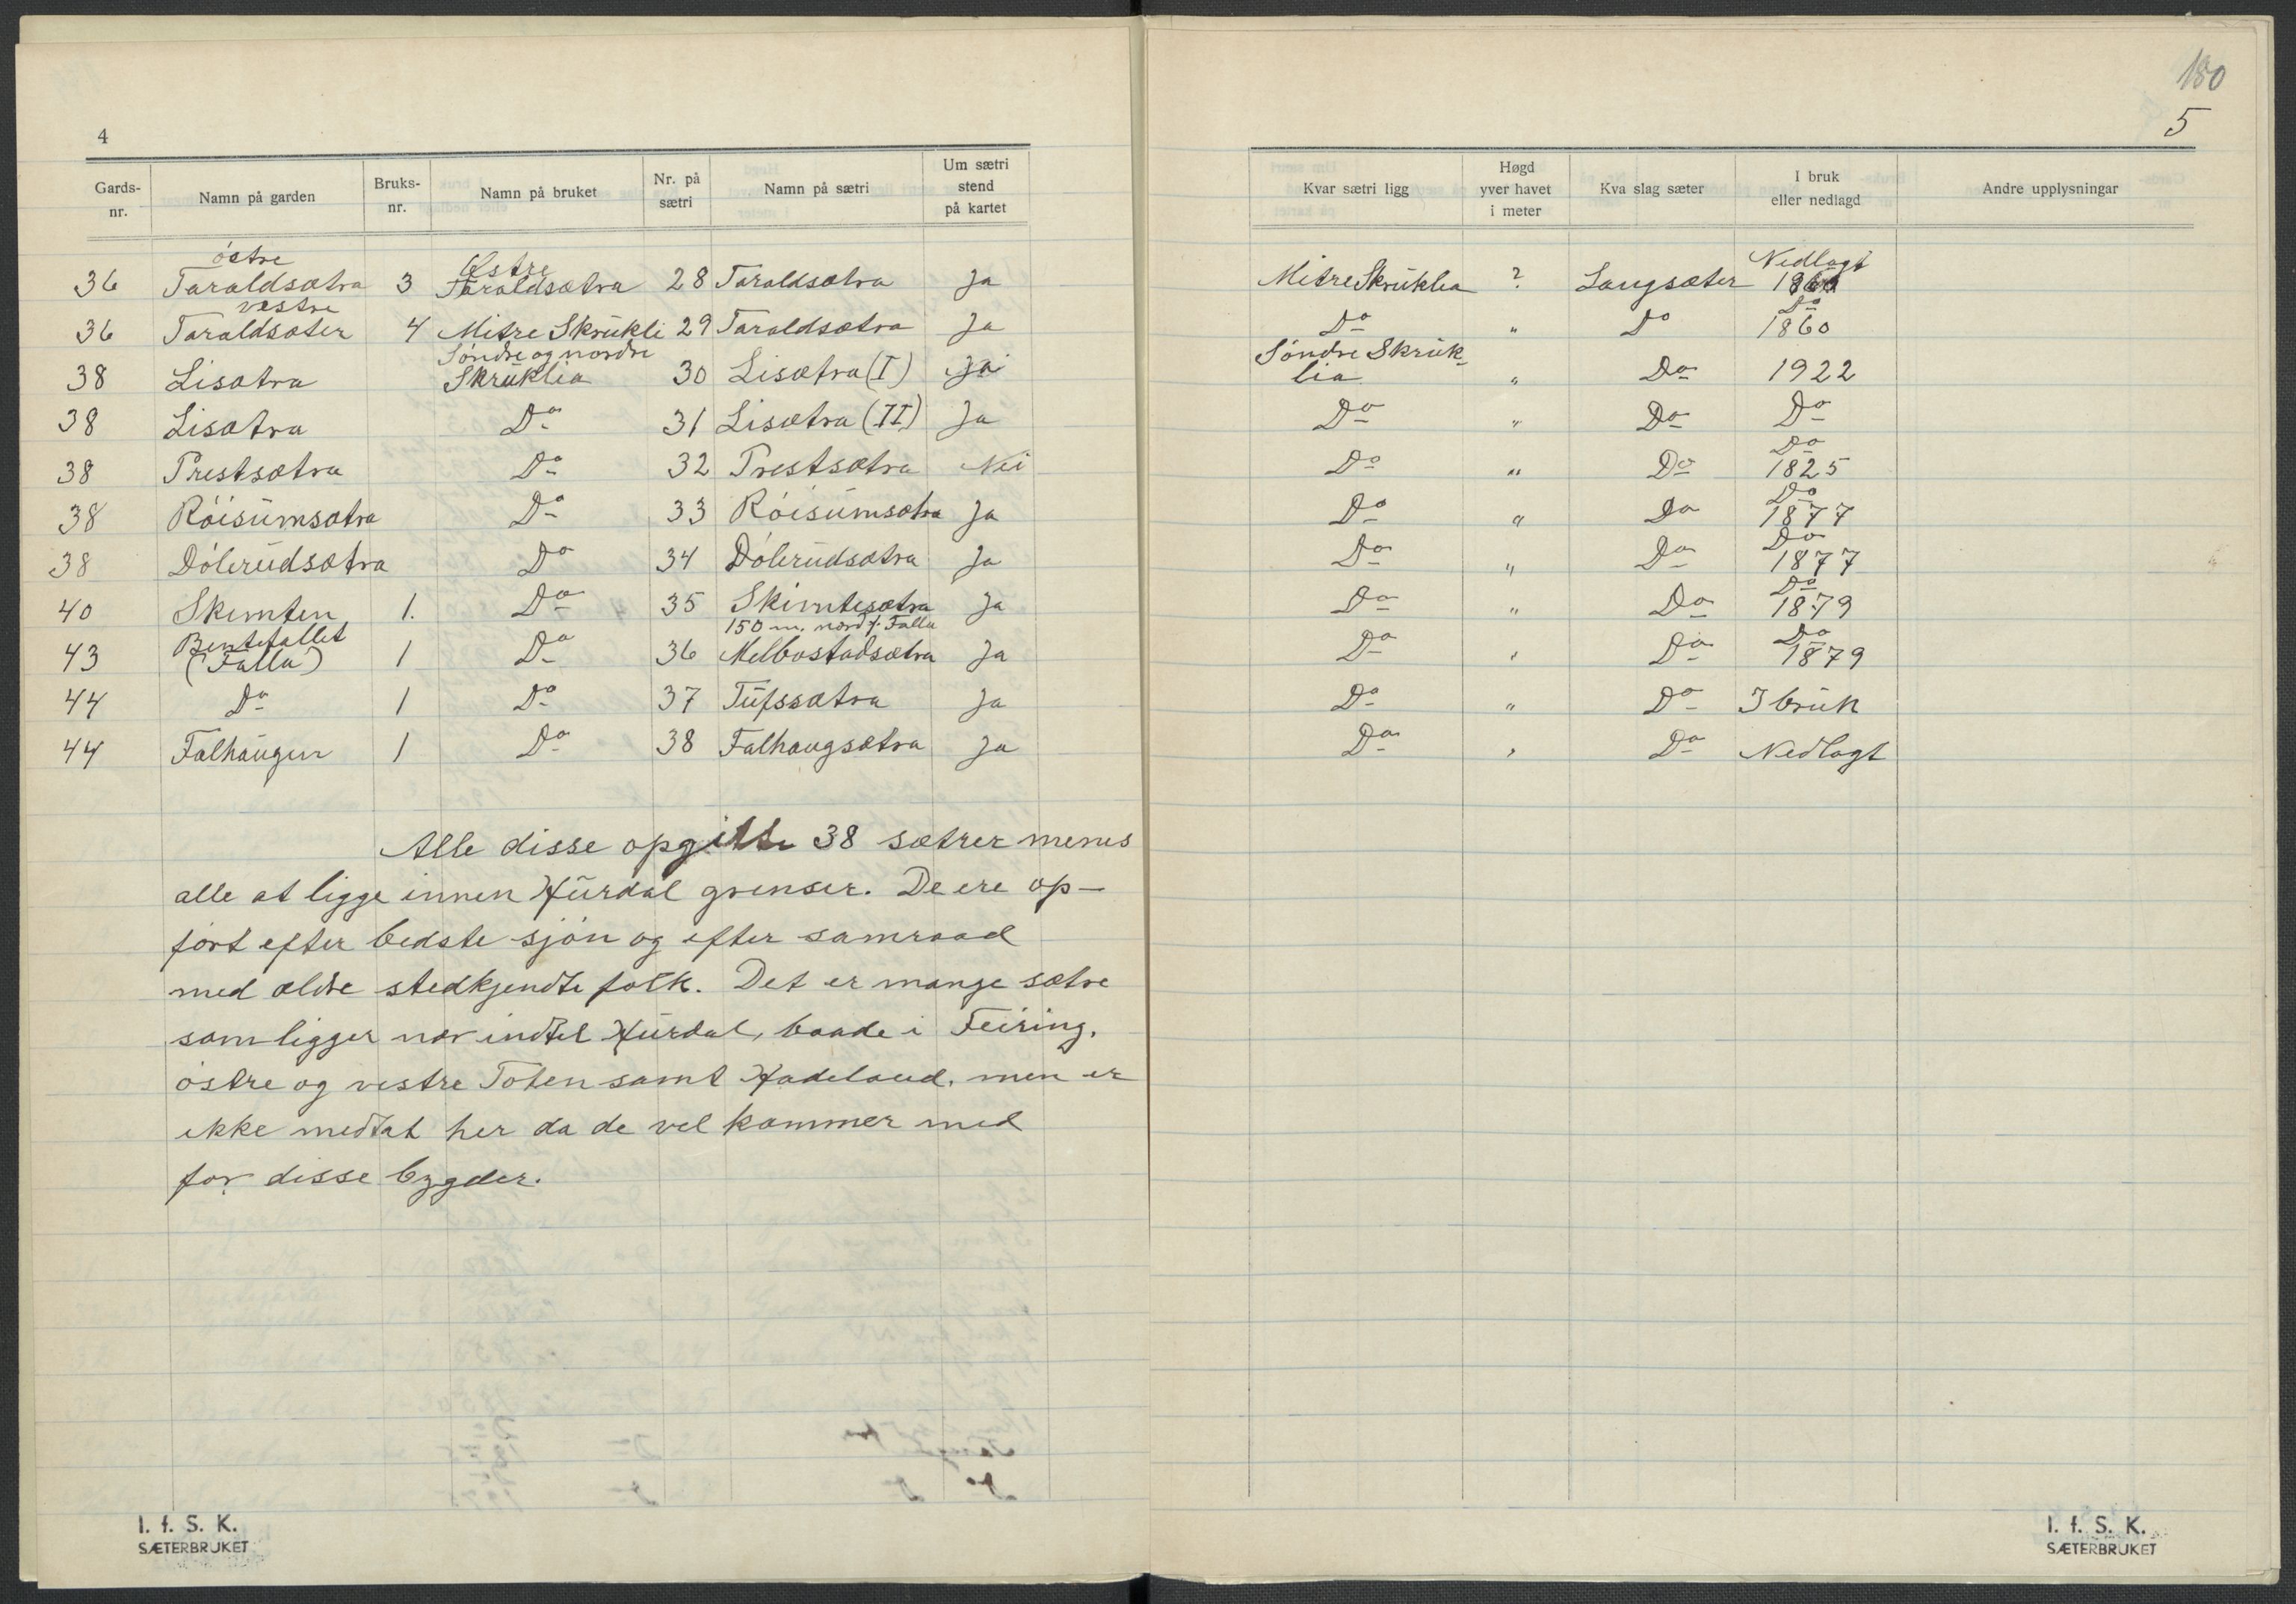 4
Gards-nr. | Namn på garden | Bruks-nr. | Namn på bruket | Nr. på sætri | Namn på sætri | Um sætri stend på kartet
36 | østre Taraldsætra | 3 | Østre Taraldsætra | 28 | Taraldsætra | Ja
36 | vestre Taraldsæter | 4 | Mitre Skrukli | 29 | Taraldsætra | Ja
38 | Lisætra | | Søndre og nordre Skruklia | 30 | Lisætra (I) | Ja
38 | Lisætra | | Do | 31 | Lisætra (II) | Ja
38 | Prestsætra | | Do | 32 | Prestsætra | Nei
38 | Røisumsætra | | Do | 33 | Røisumsætra | Ja
38 | Dølerudsætra | | Do | 34 | Dølerudsætra | Ja
40 | Skimten | 1. | Do | 35 | Skimtesætra | Ja
43 | Bentefallet (Falla) | 1 | Do | 36 | 150 m. nord f. Falla Melbostadsætra | Ja
44 | Do | 1 | Do | 37 | Tufssætra | Ja
44 | Falhaugen | 1 | Do | 38 | Falhaugsætra | Ja
Alle disse opgitte 38 sætrer menes
alle at ligge innen Hurdal grenser. De ere op-
ført efter bedste sjøn og efter samraad
med ældre stedkjendte folk. Det er mange sætre
som ligger nær indtil Hurdal, baade i Feiring,
østre og vestre Toten samt Hadeland, men er
ikke medtat her da de vel kommer med
for disse bygder.
I. f. S. K.
SÆTERBRUKET
180
5
Kvar sætri ligg | Høgd yver havet i meter | Kva slag sæter | I bruk eller nedlagd | Andre upplysningar
Mitre Skruklia | ? | Langsæter | Nedlagt
Do | " | Do | Do 1860
Søndre Skruk-lia | " | Do | 1922
Do | " | Do | Do
Do | " | Do | Do 1825
Do | " | Do | Do 1877
Do | " | Do | Do 1877
Do | " | Do | Do 1879
Do | " | Do | Do 1879
Do | " | Do | I bruk
Do | " | Do | Nedlagt
I. f. S. K.
SÆTERBRUKET